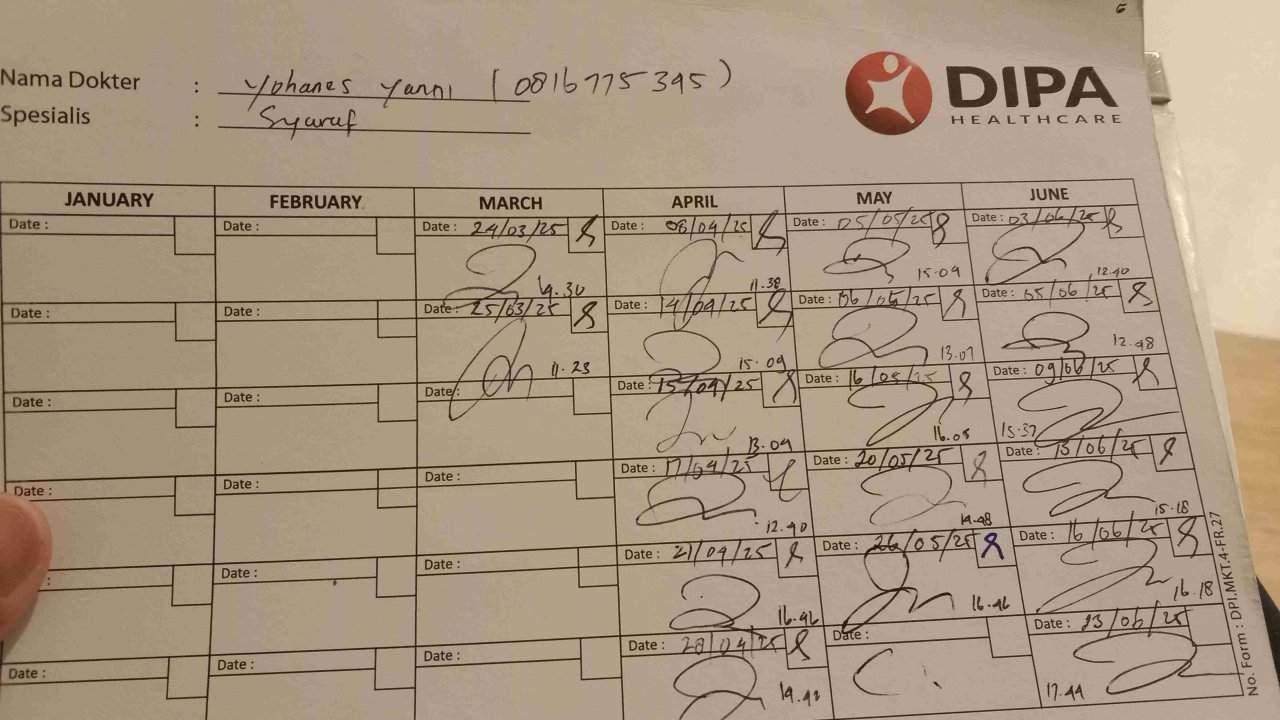 Nama Dokter : Yohanes Yanni (0816775395)
Spesialis : Syaraf
DIPA
HEALTHCARE
JANUARY FEBRUARY MARCH APRIL MAY JUNE
Date : Date : Date : 24/03/25 Date : 08/04/25 Date : 05/05/25 Date : 03/06/25
14.30 11.38 15.09 12.40
Date : Date : Date : 25/03/25 Date : 14/04/25 Date : 06/05/25 Date : 05/06/25
11.23 15.09 13.07 12.48
Date : Date : Date : Date : 15/04/25 Date : 16/05/25 Date : 09/06/25
13.09 16.05 15.37
Date : Date : Date : Date : 17/04/25 Date : 20/05/25 Date : 13/06/25
12.40 14.48 15.18
Date : Date : Date : 21/04/25 Date : 26/05/25 Date : 16/06/25
16.46 16.46 16.18
Date : Date : Date : Date : 28/04/25 Date : Date : 23/06/25
17.44
No. Form : DPI.MKT.4-FR.27